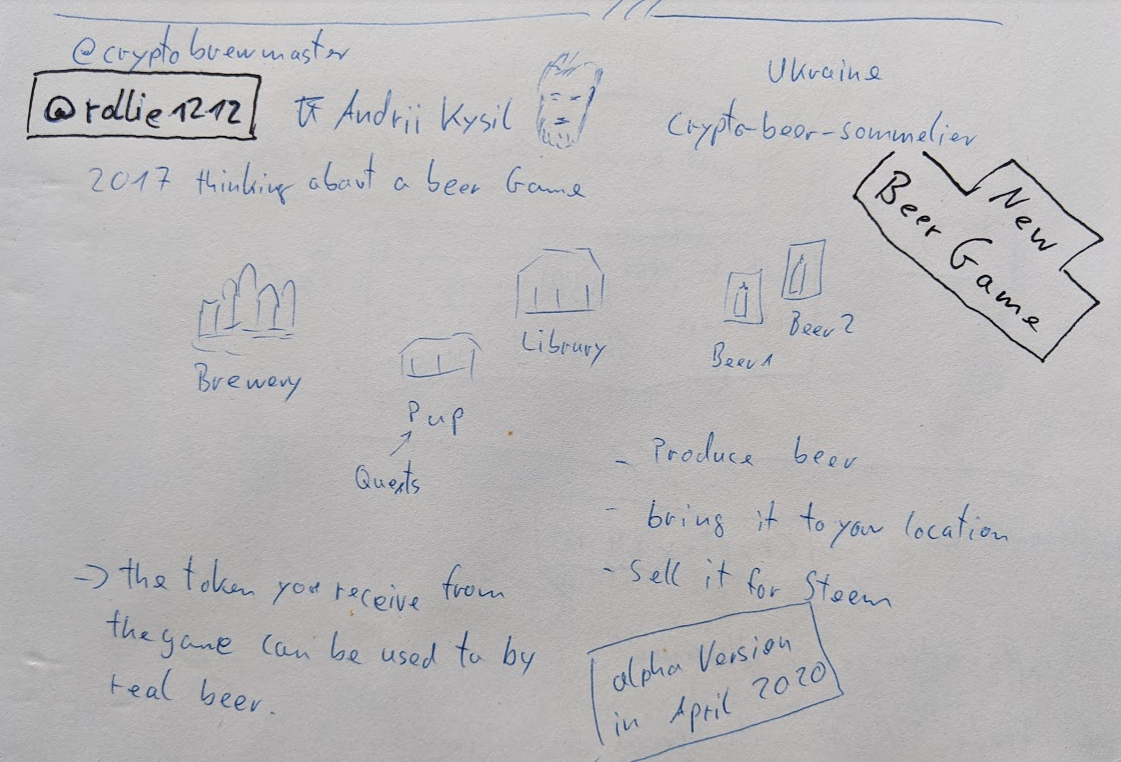 @cryptobrewmaster
@rollie1212
Andrii Kysil
Ukraine
Crypto-beer-sommelier
2017 thinking about a beer Game
New
Beer Game
Brewery
Pup
Quests
Library
Beer 1
Beer 2
- Produce beer
- bring it to your location
- Sell it for Steem
-> the token you receive from
the game can be used to by
real beer.
alpha Version
in April 2020